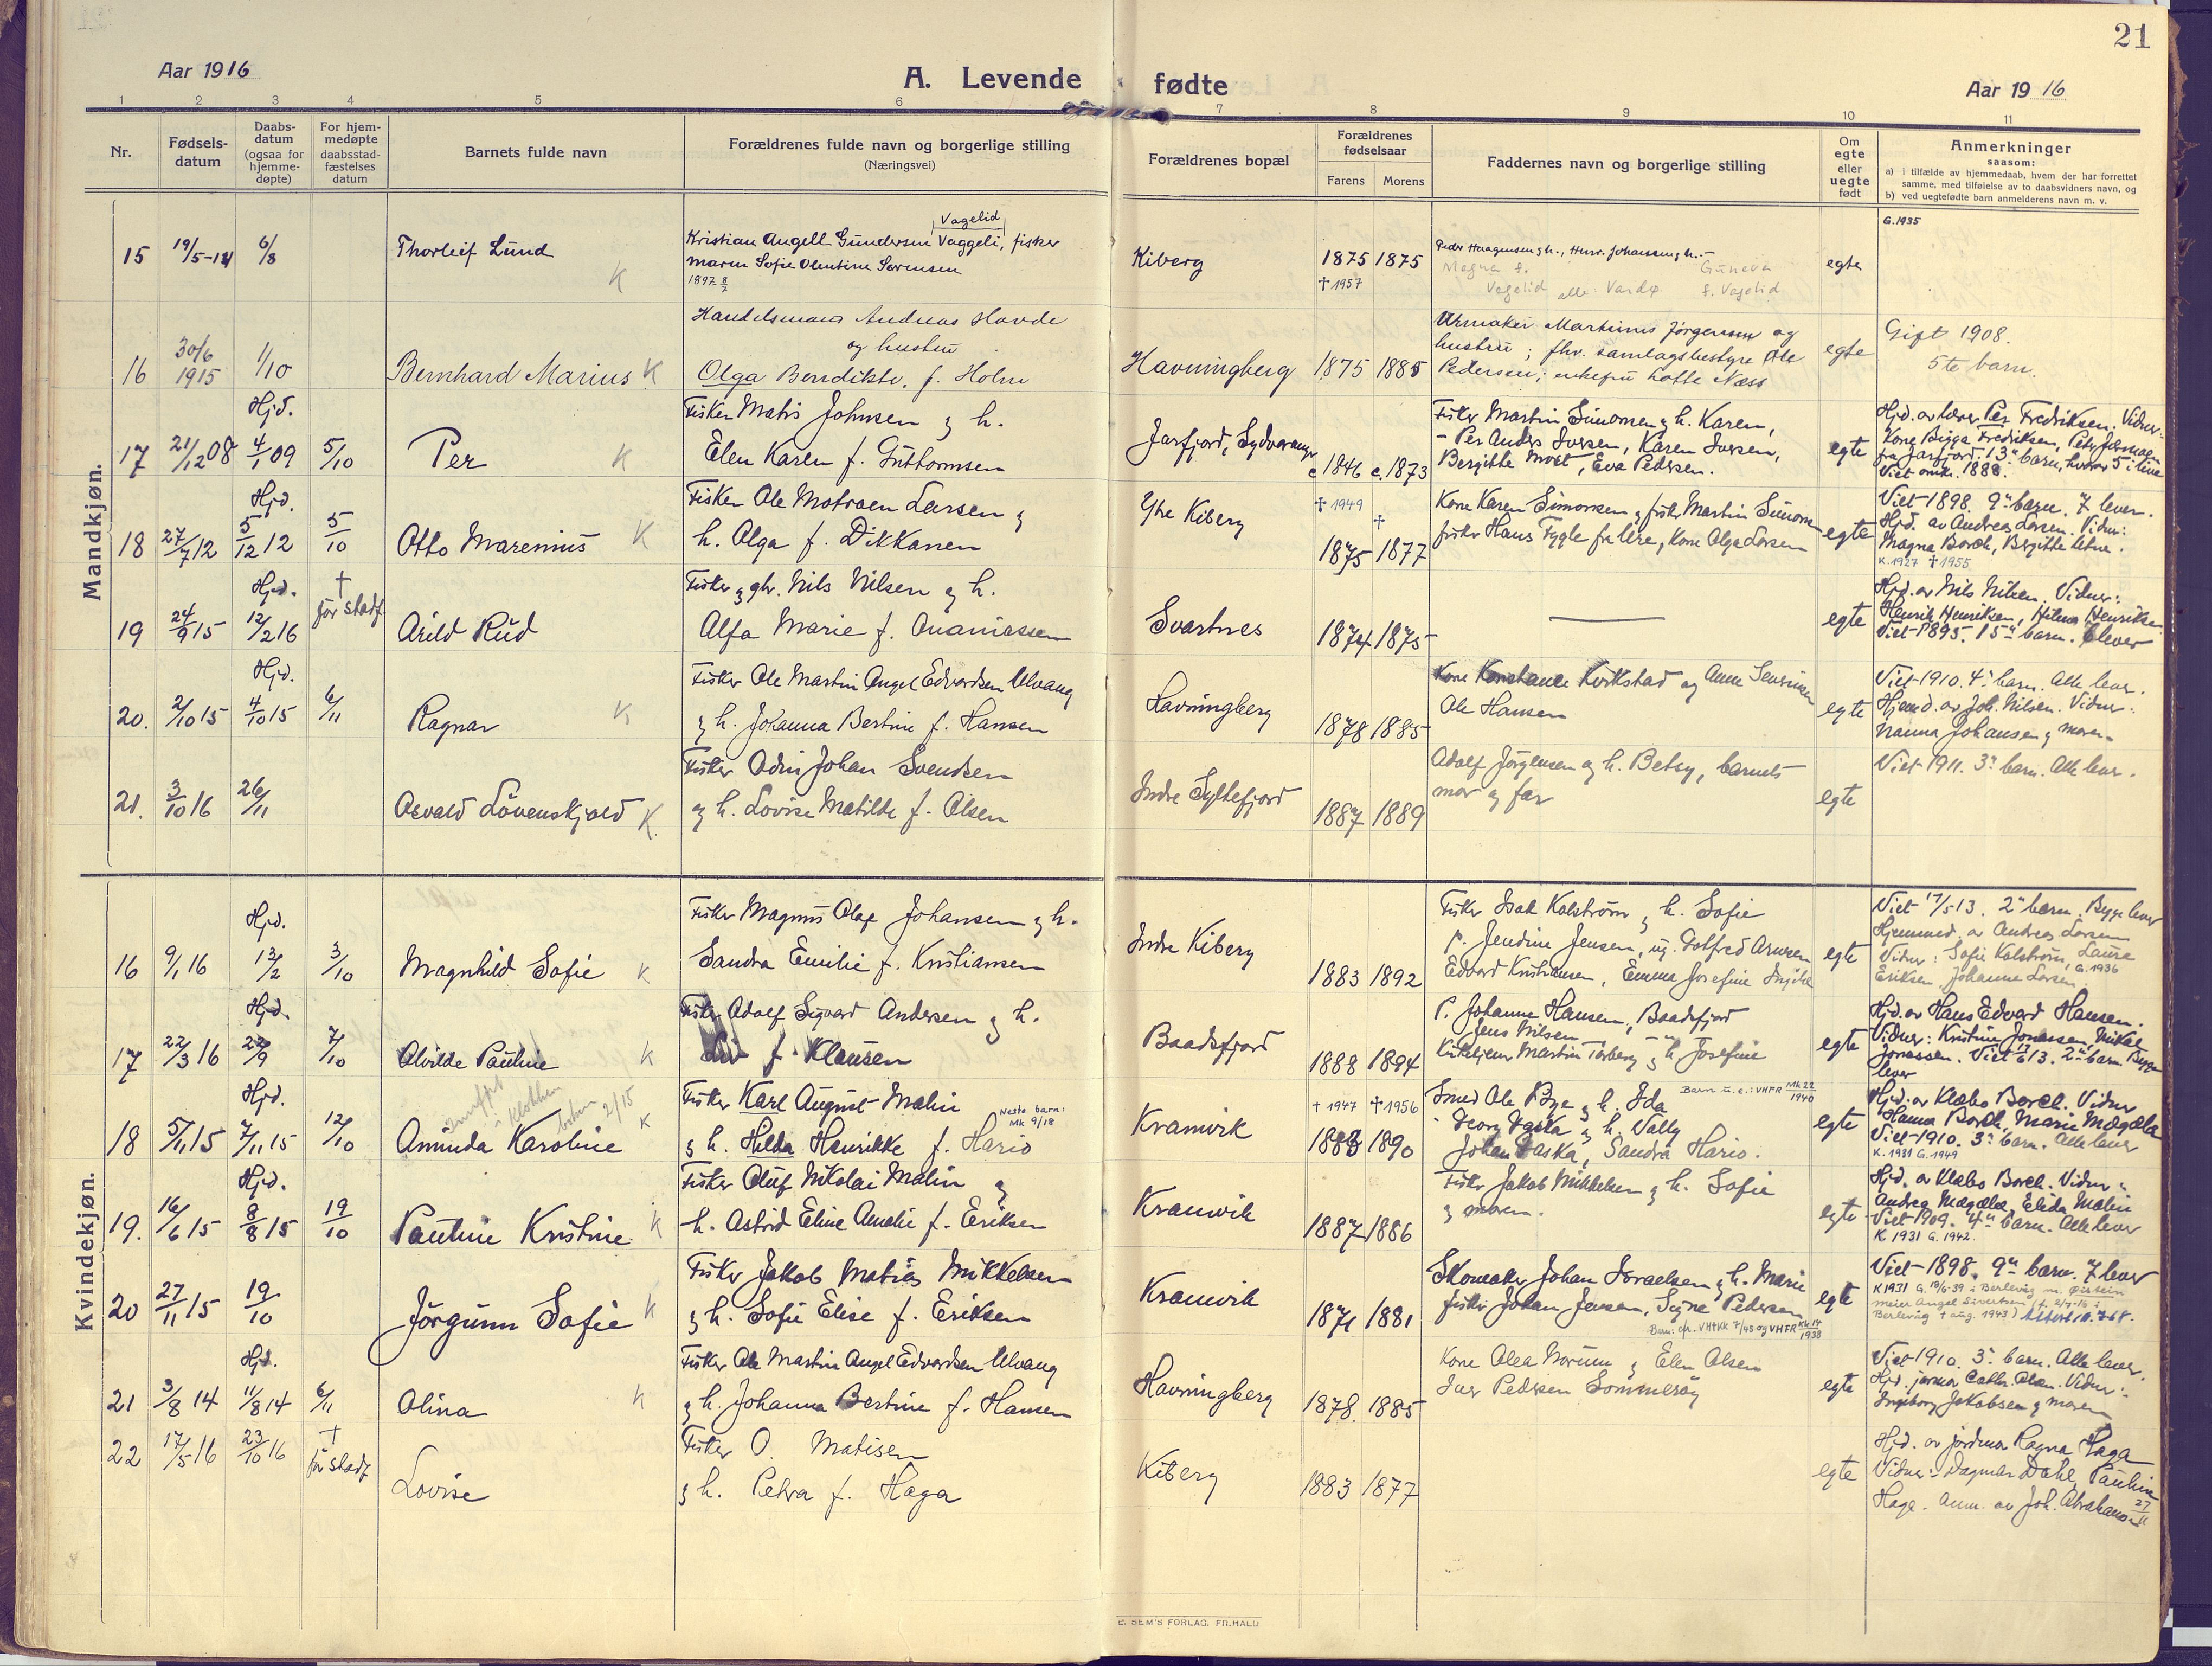 21
Aar 1916
A. Levende fødte
Aar 1916
1 2 3 4 5 6 7 8 9 10 11
Nr.
Fødsels-
datum
Daabs-
datum
(ogsaa for
hjemme-
døpte)
For hjem-
medøpte
daabsstad-
fæstelses
datum
Barnets fulde navn
Forældrenes fulde navn og borgerlige stilling
(Næringsvei)
Forældrenes bopæl
Forældrenes
fødselsaar
Farens Morens
Faddernes navn og borgerlige stilling
Om
egte
eller
uegte
født
Anmerkninger
saasom:
a) i tilfælde av hjemmedaab, hvem der har forrettet
samme, med tilføielse av to daabsvidners navn, og
b) ved uegtefødte barn anmelderens navn m. v.
Mandkjøn.
15 19/5-14 6/8 Thorleif Lund K
Vagelid
Kristian Angell Gundersen Vaggeli, fisker
Maren Sofie Olentine Sørensen
1897 8/7
Kiberg 1875 1875
† 1957
Peder Haagensen g h., Henr. Johansen g h. –
Magna f. Guneva
Vagelid alle Vardø f. Vagelid
egte
G. 1935
16 30/6 1915 1/10 Bernhard Marius K
Handelsmand Andreas Havde
og hustru
Olga Bendikte, f. Holm
Havningberg 1875 1885
Urmaker Martinus Jørgensen og
hustru; fhv. samlagsbestyre Ole
Pedersen; enkefru Lotte Næss
egte
Gift 1908.
5te barn.
17 21/12 08 Hjd. 4/1 09 5/10 Per K
Fisker Matis Johnsen g h.
Elen Karen f. Guttormsen
Jarfjord, Sydvaranger c 1846 c. 1873
Fisker Martin Simonsen g h. Karen,
– Per Anders Iversen, Karen Iversen,
Bergitte Most, Eva Pedersen.
egte
Hjd. av lærer Per Fredriksen. Vidner:
Kone Bigga Fredriksen,
fra Jarfjord. 13de barn, hvorav 5 i live
Viet omk. 1888.
18 27/7 12 Hjd. 5/12 12 5/10 Otto Marenius K
Fisker Ole Motroen Larsen g
h. Olga f. Dikkanen
Ytre Kiberg † 1949 †
1875 1877
Kone Karen Simonsen g fisker Martin Simonsen
fisker Hans Tygle fra Ure, Kone Olga Larsen
egte
Viet 1898. 9de barn. 7 lever.
Hjd. av Andrea Larsen. Vidner:
Magna Borch, Bergitte Utne.
K. 1927 † 1955
19 24/9 15 Hjd. 12/2 16 † før stadf. Arild Rud
Fisker g gbr. Nils Nilsen g h.
Alfa Marie f. Ananiassen
Svartnes 1874 1875
—
egte
Hjd. av Nils Nilsen. Vidner:
Henrik Henriksen, Helena Henriksen
Viet 1895. 15de barn. 6 lever
20. 2/10 15 Hjd. 4/10 15 6/11 Ragnar K
Fisker Ole Martin Angel Edvardsen Ulvang
g h. Johanna Bertine f. Hansen
Havningberg 1878 1885
Kone Konstance Kvikstad og Anne Sevrinsen
Ole Hansen
egte
Viet 1910. 4de barn. Alle lever.
Hjemd. av Joh. Nilsen. Vidner:
Nanna Johansen g moren.
21. 3/10 16 26/11 Osvald Lövenskjold K.
Fisker Odin Johan Svendsen
og h. Lovise Matilde f. Olsen
Indre Syltefjord 1887 1889
Adolf Jörgensen og h. Betsy, barnets
mor og far
egte
Viet 1911. 3de barn. Alle lever.
Kvindekjøn.
16 9/1 16 Hjd. 13/2 3/10 Magnhild Sofie K
Fisker Magnus Olaf Johansen g h.
Sandra Emilie f. Kristiansen
Indre Kiberg 1883 1892
Fisker Isak Kolström g h. Sofie
P. Jendine Jensen, ug. Gotfred Arnesen
Edvard Kristiansen, Emma Josefine
egte
Viet 17/5 13. 2de barn. Begge lever
Hjemmed. av Andreas Larsen
Vidner: Sofie Kolström, Laura G. 1936
Eriksen, Johanne Larsen
17 22/3 16 Hjd. 22/9 7/10 Alvilde Pauline K
Fisker Adolf Sigvard Andersen g h.
f. Klausen
Baadsfjord 1888 1894
P. Johanne Hansen, Baadsfjord
Jens Nilsen — " —
Kirketjener Martin Torberg g h. Josefine
egte
Hjd. av Hans Edvard Hansen.
Vidner: Kristine Jonassen, Mikal
Jonassen. Viet 17/6 13. 2de barn. Begge
lever
18 5/11 15 Hjd. 7/11 15 12/10 Aminda Karoline K
innført i Klokkerboken 2/15
Fisker Karl August Malin
g h. Hilda Henrikke f. Hario
Neste barn: Mk 9/18
Kramvik † 1947 † 1956
1883 1890
Smed Ole Bye g h. Ida
Barn u. e.: VHFR Mk 22/1940
- Georg Jaska g h. Wally
Johan Jaska, Sandra Hario.
egte
Hjd. av Klæbo Borch. Vidner
Hanna Borch, Marie Magdala
Viet 1910. 3de barn. Alle lever
K. 1931 G. 1949
19. 16/6 15 Hjd. 8/8 15 19/10 Pauline Kristine K
Fisker Oluf Nikolai Malin g
h. Astrid Eline Amalie f. Eriksen
Kramvik 1887 1886
Fisker Jakob Mikkelsen g h. Sofie
g moren.
egte
Hjd. av Klæbo Borch. Vidner:
Andrea Magdala, Elida Malin
Viet 1909. 4de barn. Alle lever
K. 1931 G. 1942.
20 27/11 15 19/10 Jörgunn Sofie K
Fisker Jakob Matias Mikkelsen
g h. Sofie Elise f. Eriksen
Kramvik 1871 1881
Skomaker Johan Israelsen g h. Marie
fisker Johan Jensen, Signe Pedersen
Barn: cfr. VHKK 7/45 og VHFR Kk 14/1938
egte
Viet 1898. 9de barn. 7 lever
K 1931 G. 18/6-39 i Berlevåg m. Øistein
Meier Angel Sivertsen (f. 2/7-15 i
Berlevåg † aug. 1943)
21 3/8 14 Hjd. 11/8 14 6/11 Olina K
Fisker Ole Martin Angel Edvardsen Ulvang
g h. Johanna Bertine f. Hansen
Havningberg 1878. 1885
Kone Olea Norum g Elen Olsen
Iver Pedersen Sommersøy
egte
Viet 1910. 3de barn. Alle lever.
Hjd. jormor Cathr. Olsen. Vidner:
Ingeborg Jakobsen g moren
22 17/5 16 23/10 16 † før stadf Lovise
Fisker O. Matisen
g h. Petra f. Haga
Kiberg 1883 1877
egte
Hjd. av jordmor Ragna Haga
Vidner: Dagmar Dahl, Pauline
Haga. Anm. av Joh. Abrahamsen 27/11
E. SEM'S FORLAG. FR.HALD